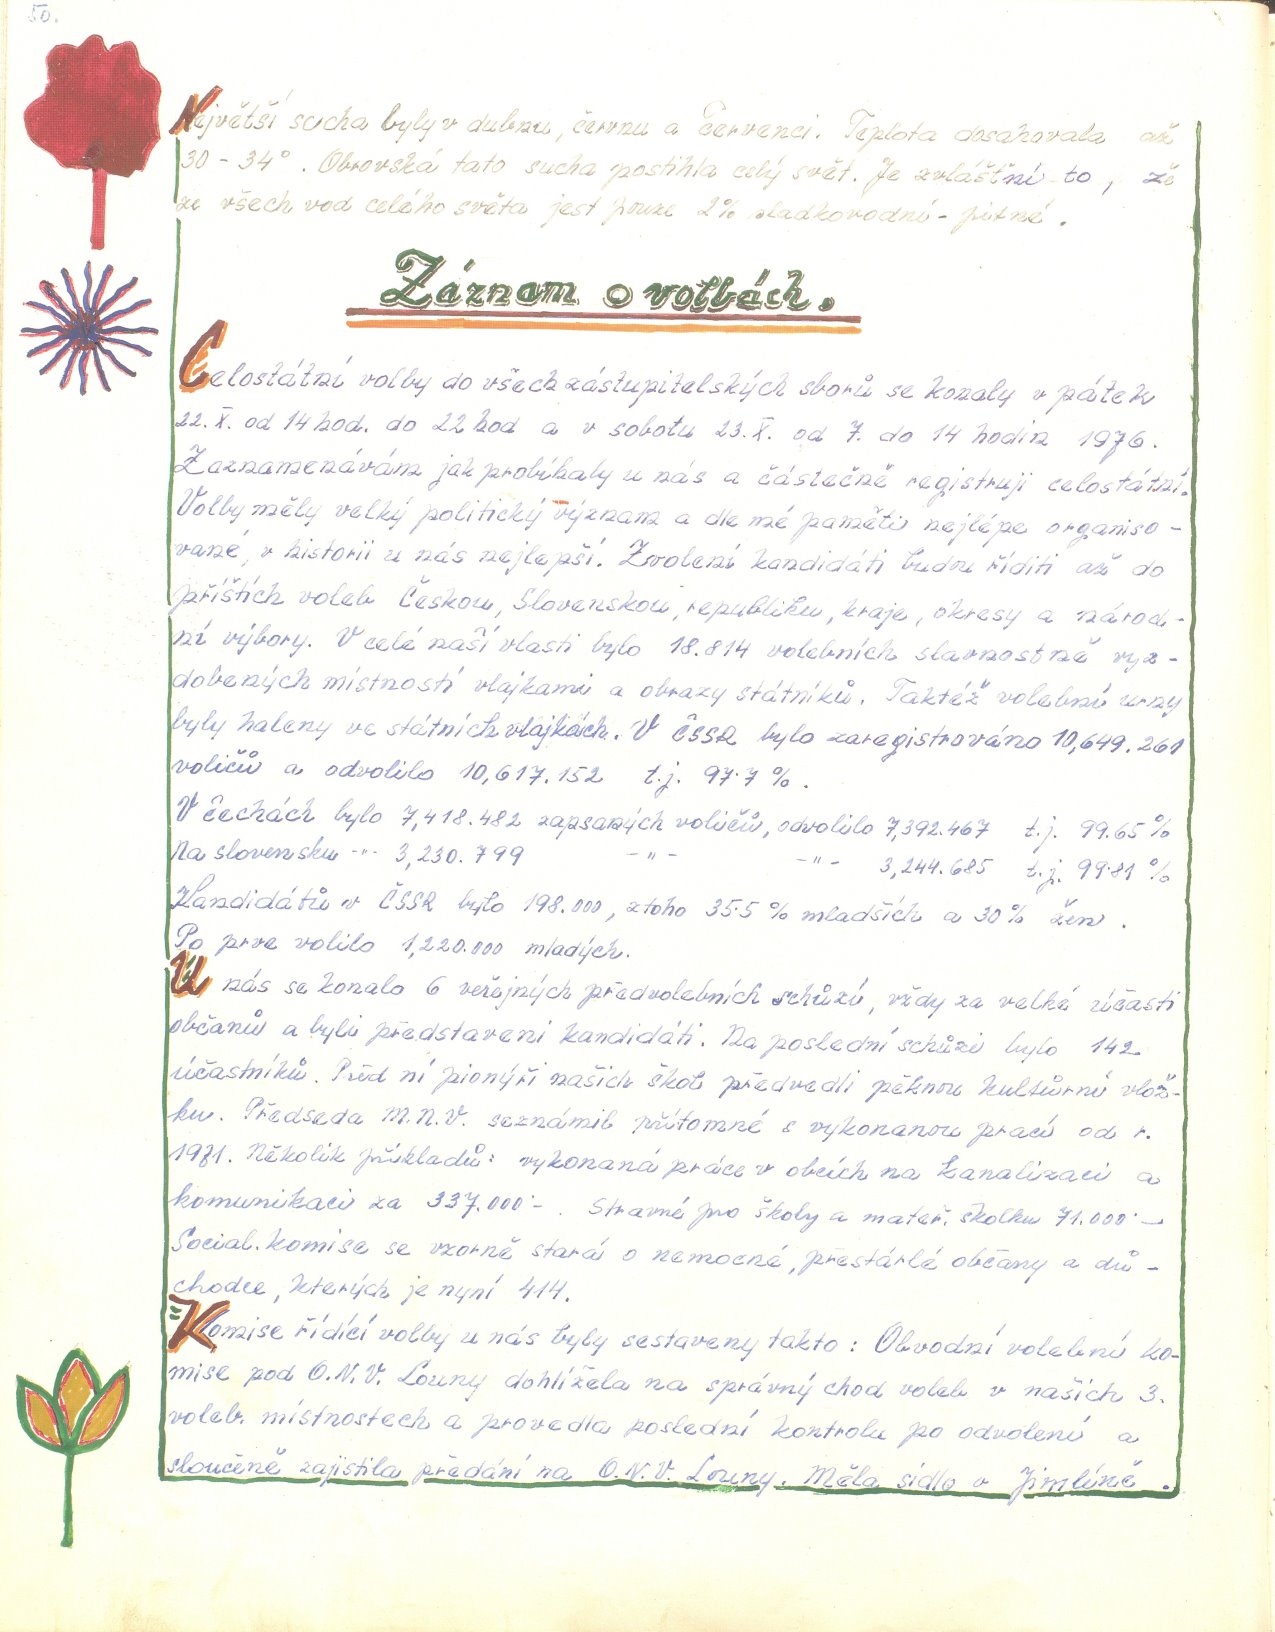 50.
Největší sucha byly v dubnu, červnu a červenci. Teplota dosahovala až
30 - 34°. Obrovská tato sucha postihla celý svět. Je zvláštní to, že
ze všech vod celého světa jest pouze 2% sladkovodní - pitné.
Záznam o volbách.
Celostátní volby do všech zástupitelských sborů se konaly v pátek
22. X. od 14 hod. do 22 hod a v sobotu 23. X. od 7. do 14 hodin 1976.
Zaznamenávám jak probíhaly u nás a částečně registruji celostátní.
Volby měly velký politický význam a dle mé paměti nejlépe organiso-
vané, v historii u nás nejlepší. Zvolení kandidáti budou říditi až do
příštích voleb Českou, Slovenskou, republiku, kraje, okresy a národ-
ní výbory. V celé naší vlasti bylo 18.814 volebních slavnostně vyz-
dobených místností vlajkami a obrazy státníků. Taktéž volební urny
byly haleny ve státních vlajkách. V ČSSR bylo zaregistrováno 10,649.261
voličů a odvolilo 10,617.152 t.j. 97.7 %.
V čechách bylo 7,418.482 zapsaných voličů, odvolilo 7,392.467 t.j. 99.65 %
Na slovensku -"- 3,230.799 -"- -"- 3,244.685 t.j. 99.81 %
Kandidátů v ČSSR bylo 198.000, z toho 35.5 % mladších a 30 % žen.
Po prve volilo 1,220.000 mladých.
U nás se konalo 6 veřejných předvolebních schůzí, vždy za velké účasti
občanů a byli představeni kandidáti. Na poslední schůzi bylo 142
účastníků. Před ní pionýři našich škol předvedli pěknou kulturní vlož-
ku. Předseda M.N.V. seznámil přítomné s vykonanou prací od r.
1971. Několik příkladů: vykonaná práce v obcích na kanalizaci a
komunikaci za 337.000.- . Stravné pro školy a mateř. školku 71.000.-
Social. komise se vzorně stará o nemocné, přestárlé občany a dů-
chodce, kterých je nyní 414.
Komise řídící volby u nás byly sestaveny takto: Obvodní volební ko-
mise pod O.N.V. Louny dohlížela na správný chod voleb v našich 3.
voleb. místnostech a provedla poslední kontrolu po odvolení a
sloučeně zajistila předání na O.N.V. Louny. Měla sídlo v Jimlíně.